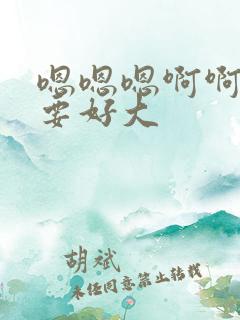 嗯嗯嗯啊啊
要好大
胡斌
未经同意禁止转载